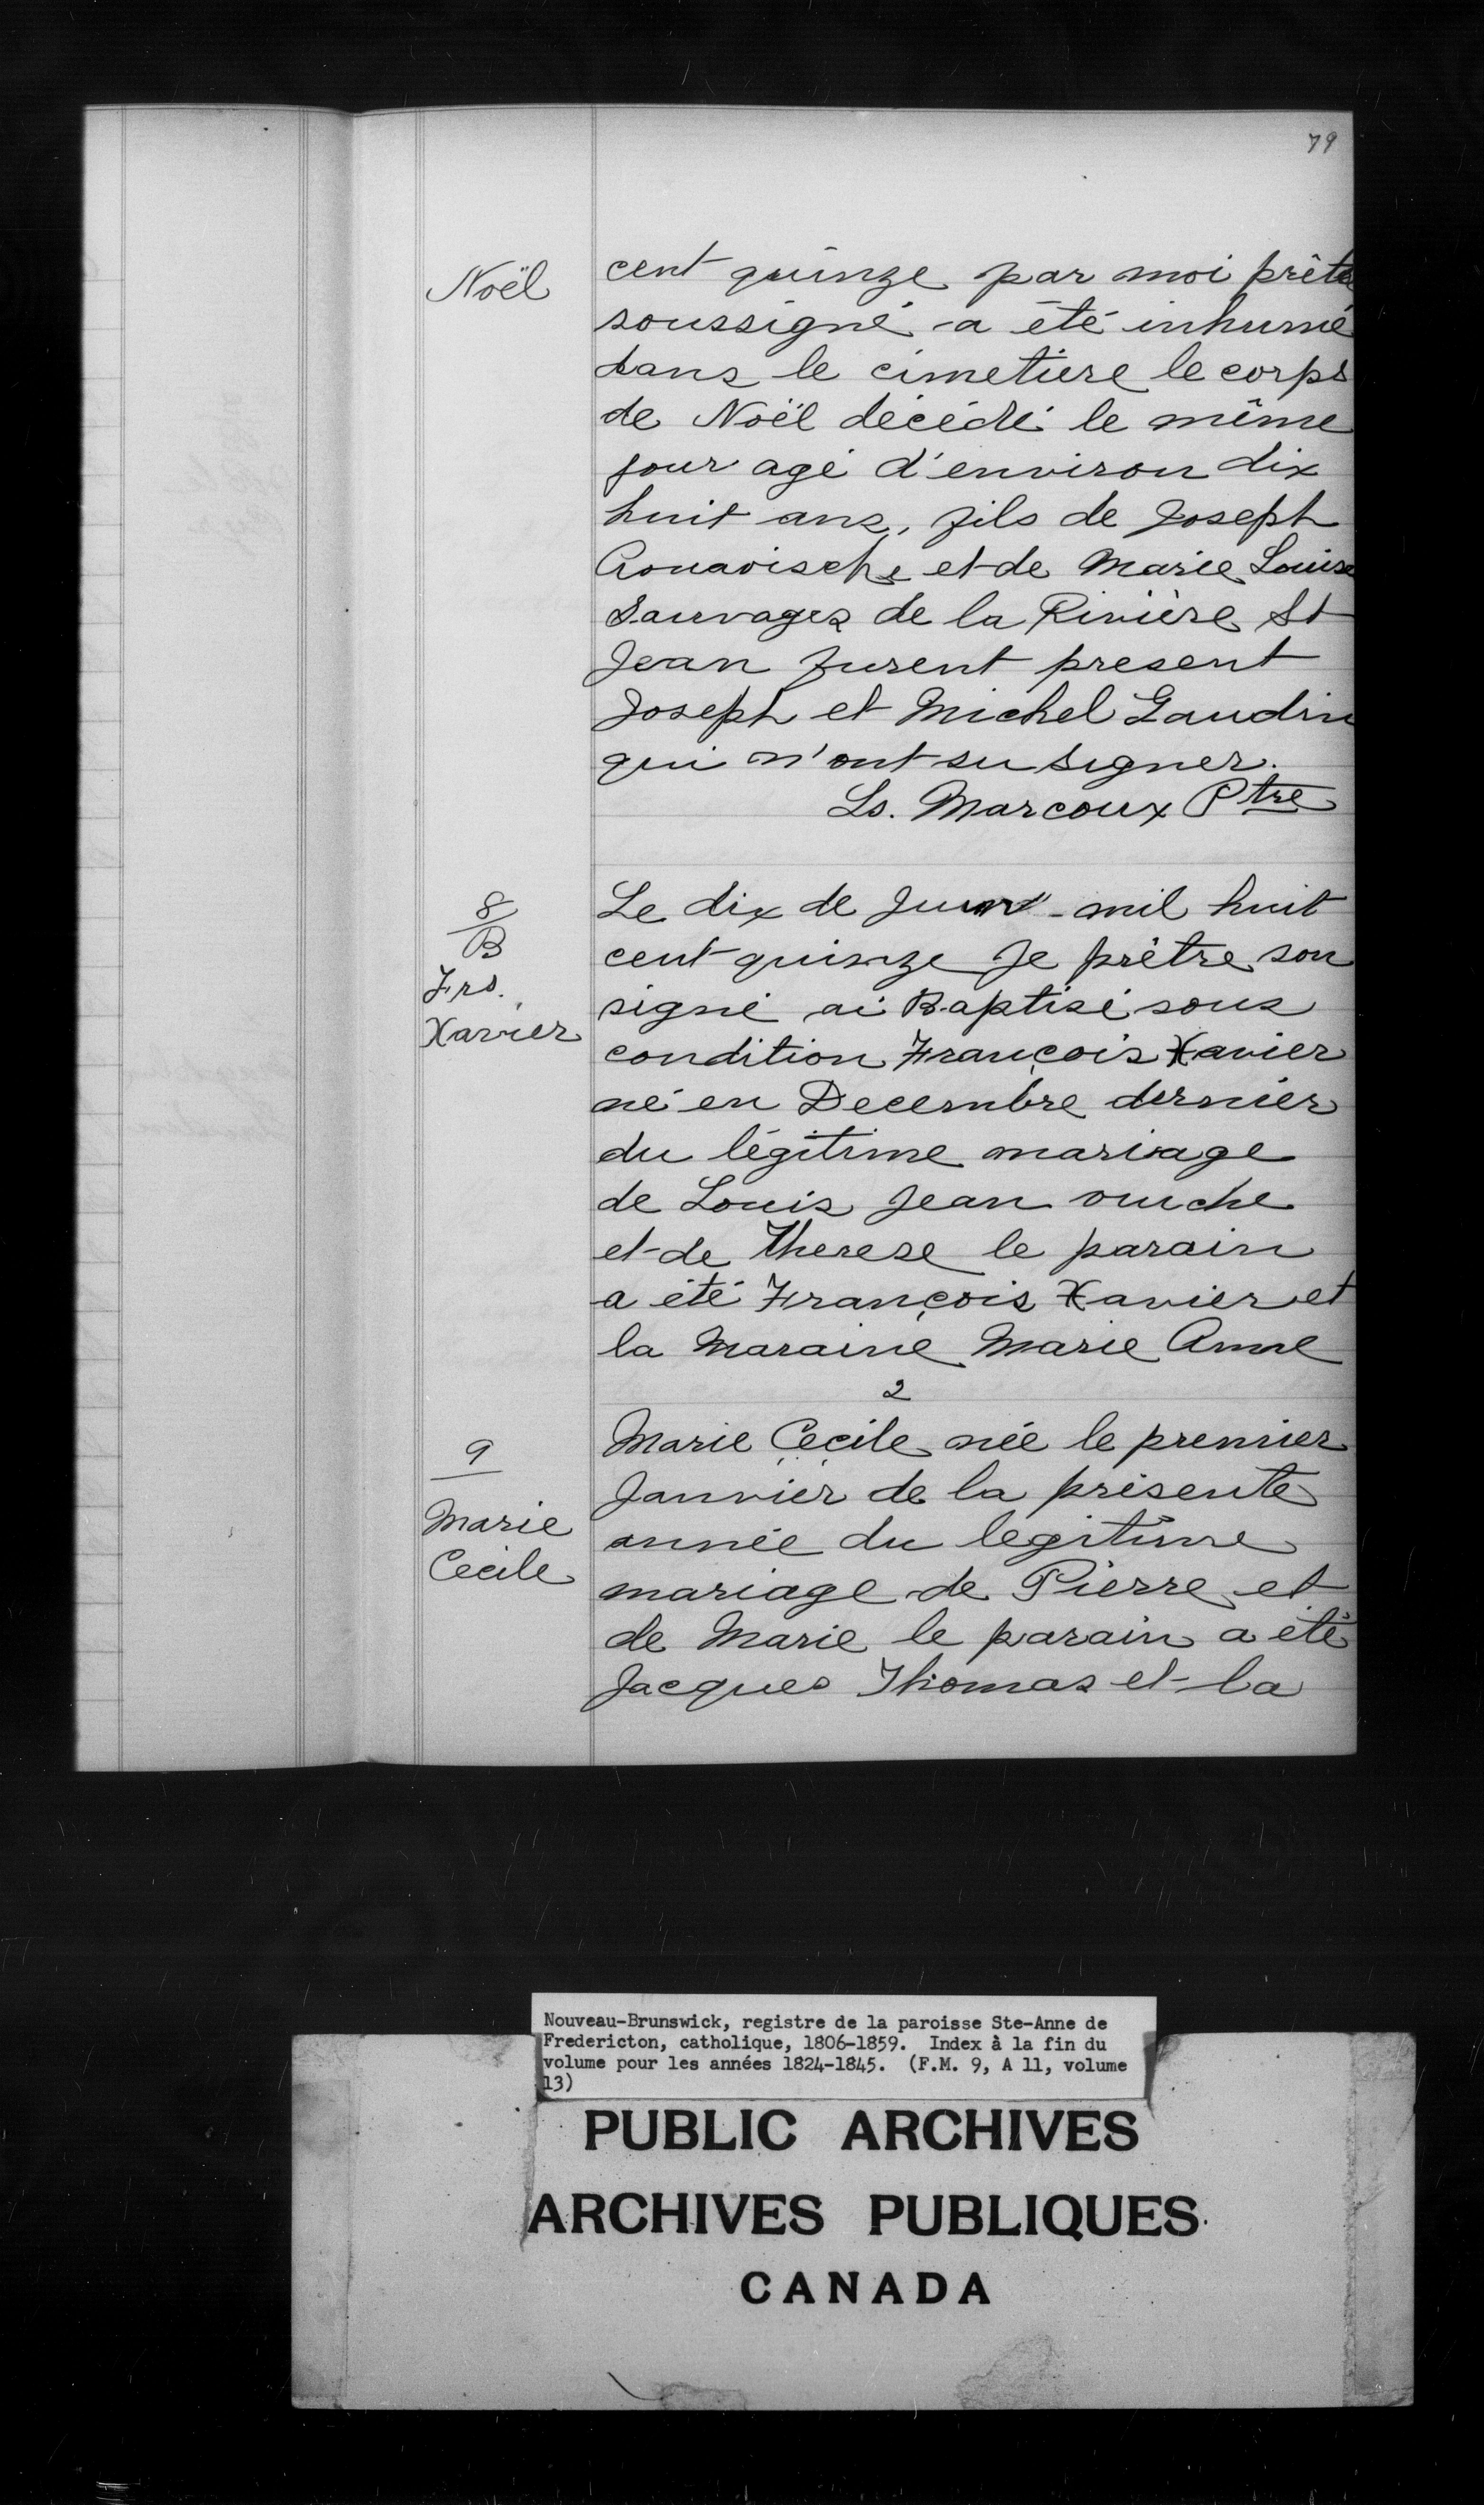 79
Noël
cent quinze par moi prêtre
soussigné a été inhumé
dans le cimetière le corps
de Noël décédé le même
jour agé d'environ dix
huit ans, fils de Joseph
et de Marie Louise
Sauvages de la Rivière St
Jean furent present
Joseph et Michel Gaudin
qui n'ont su signer.
Ls. Marcoux Ptre
8
B
Frs.
Xavier
Le dix de Juin mil huit
cent quinze Je prêtre sou
signé ai Baptisé sous
condition François Xavier
né en Decembre dernier
du légitime mariage
de Louis Jean ouiche
et de Therese le parain
a été François Xavier et
la Maraine Marie Anne
2
9
Marie
Cecile
Marie Cecile née le premier
Janvier de la présente
année du legitime
mariage de Pierre et
de Marie le parain a été
Jacques Thomas et la
Nouveau-Brunswick, registre de la paroisse Ste-Anne de
Fredericton, catholique, 1806-1859. Index à la fin du
volume pour les années 1824-1845. (F.M. 9, A 11, volume
13)
PUBLIC ARCHIVES
ARCHIVES PUBLIQUES
CANADA